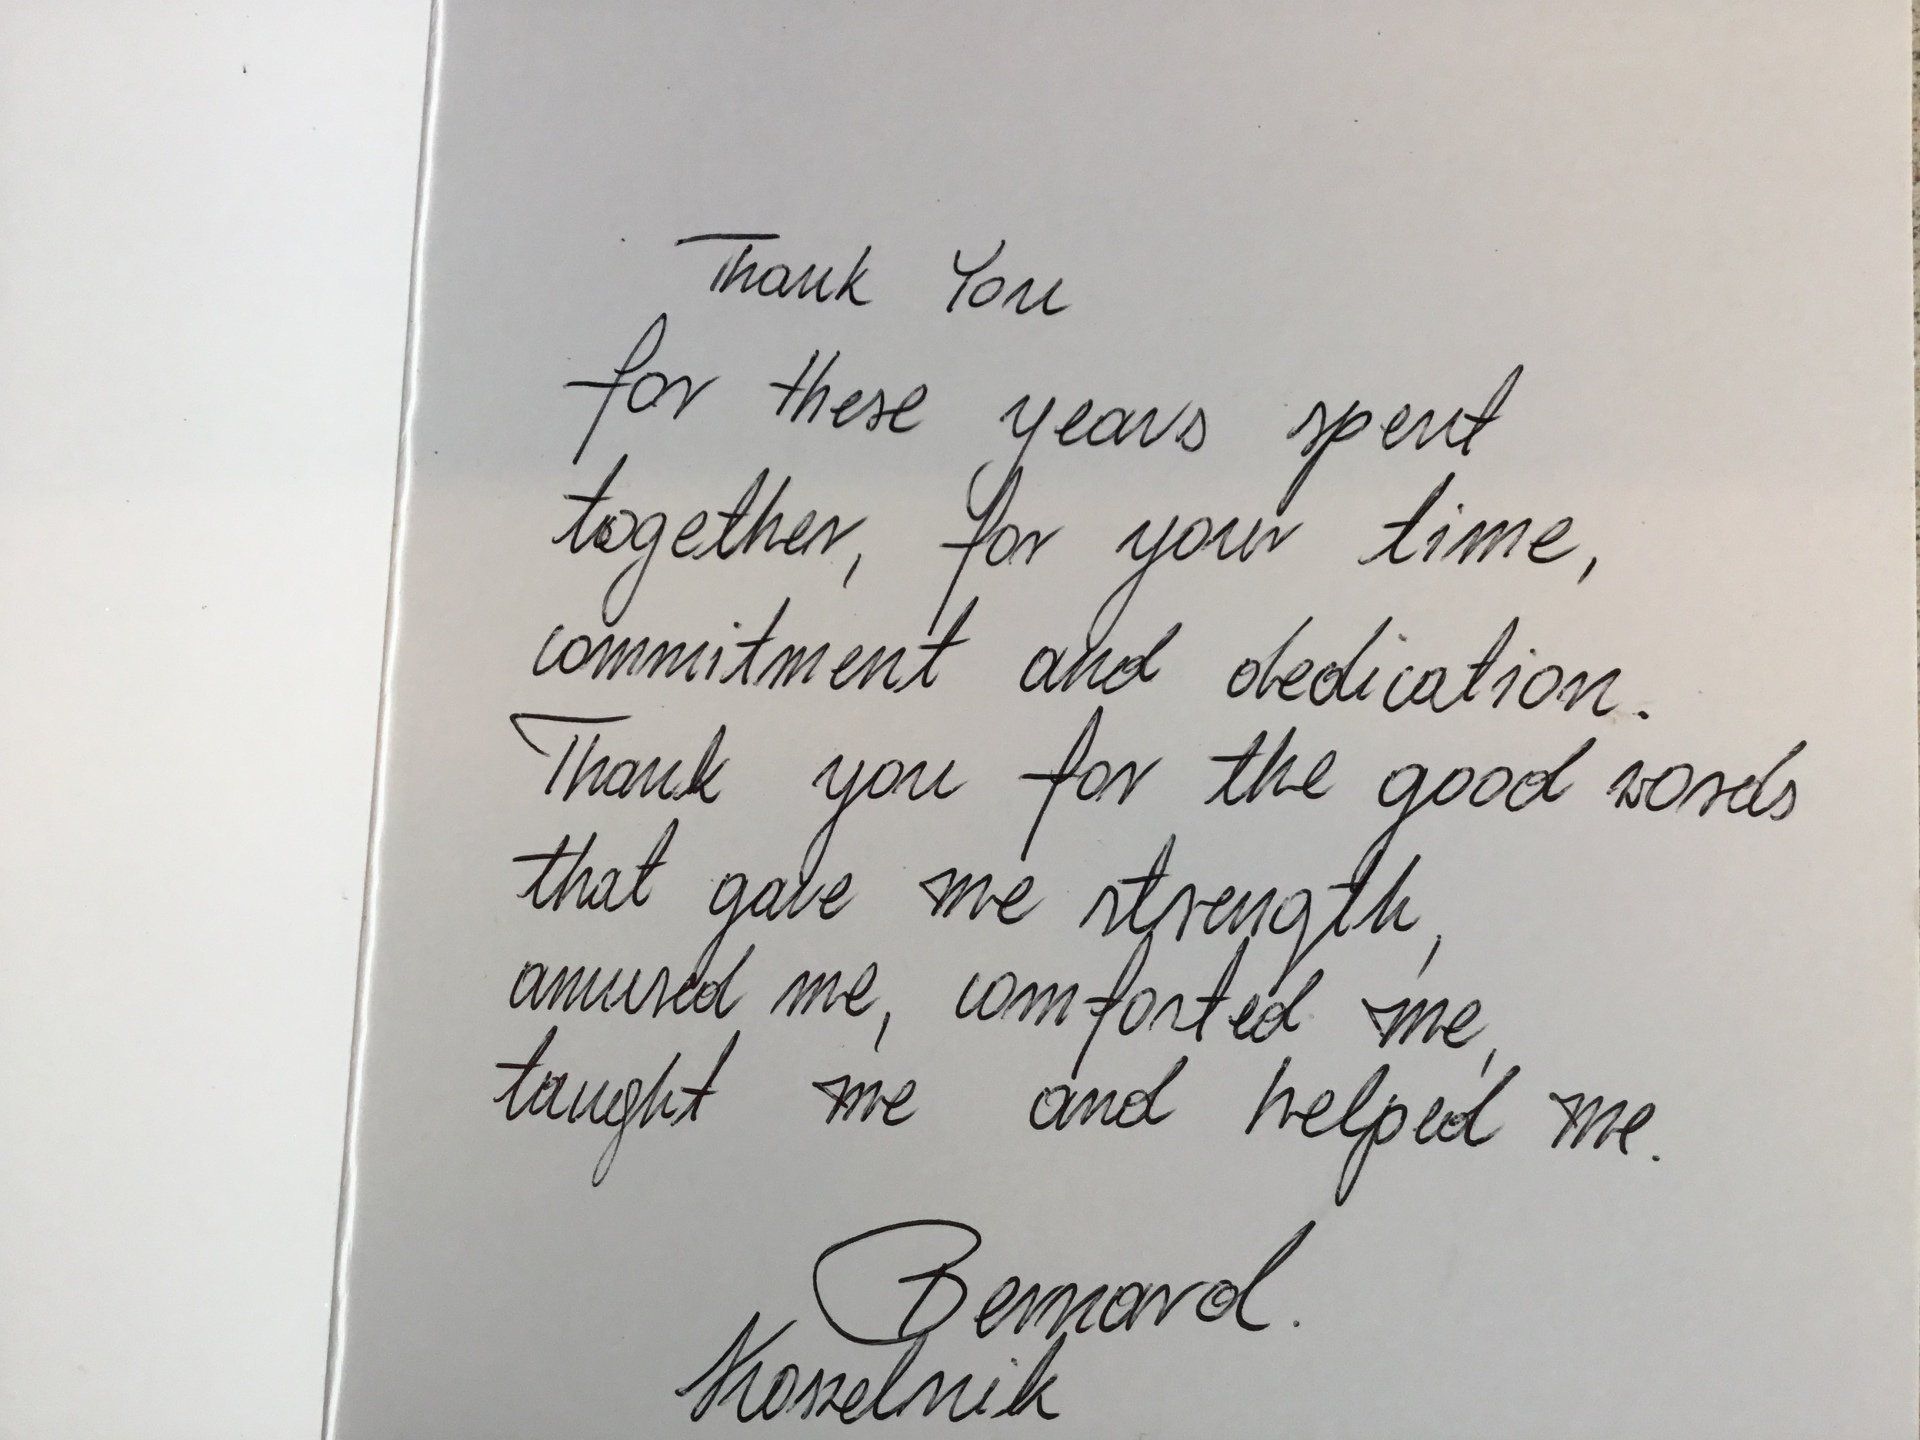 Thank You
for these years spent
together, for your time,
commitment and dedication.
Thank you for the good words
that gave me strength,
amused me, comforted me,
taught me and helped me.
Bernard.